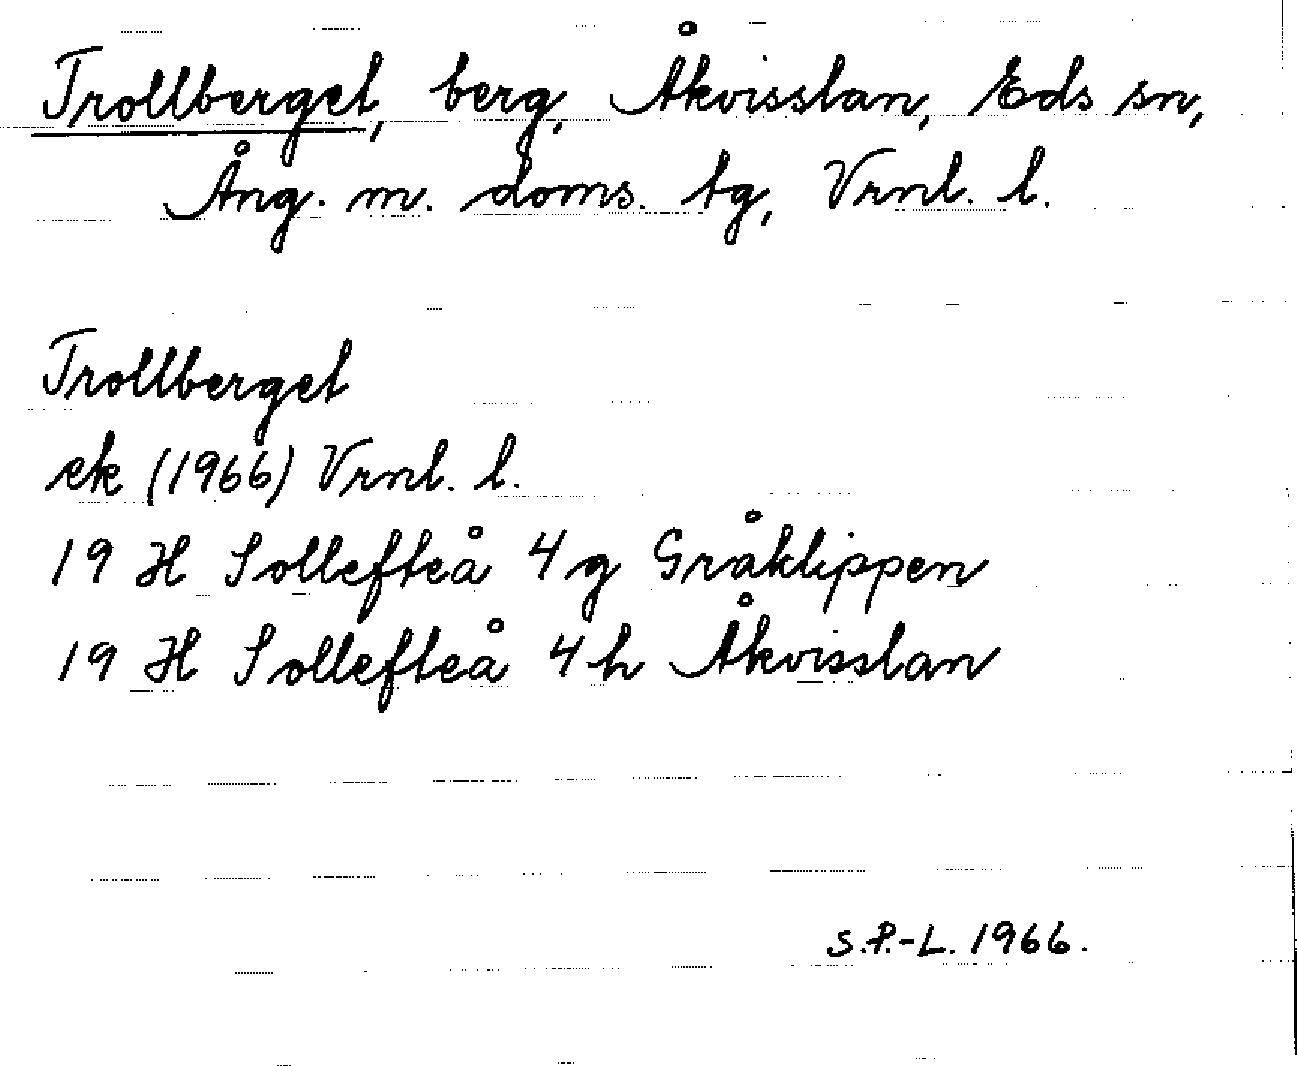 Trollberget, berg, Åkvisslan, Eds sn,
Ång. m. doms. tg, Vrnl. l.
Trollberget
ek (1966) Vrnl. l.
19 H Sollefteå 4 g Gråklippen
19 H Sollefteå 4 h Åkvisslan
S.P.-L. 1966.